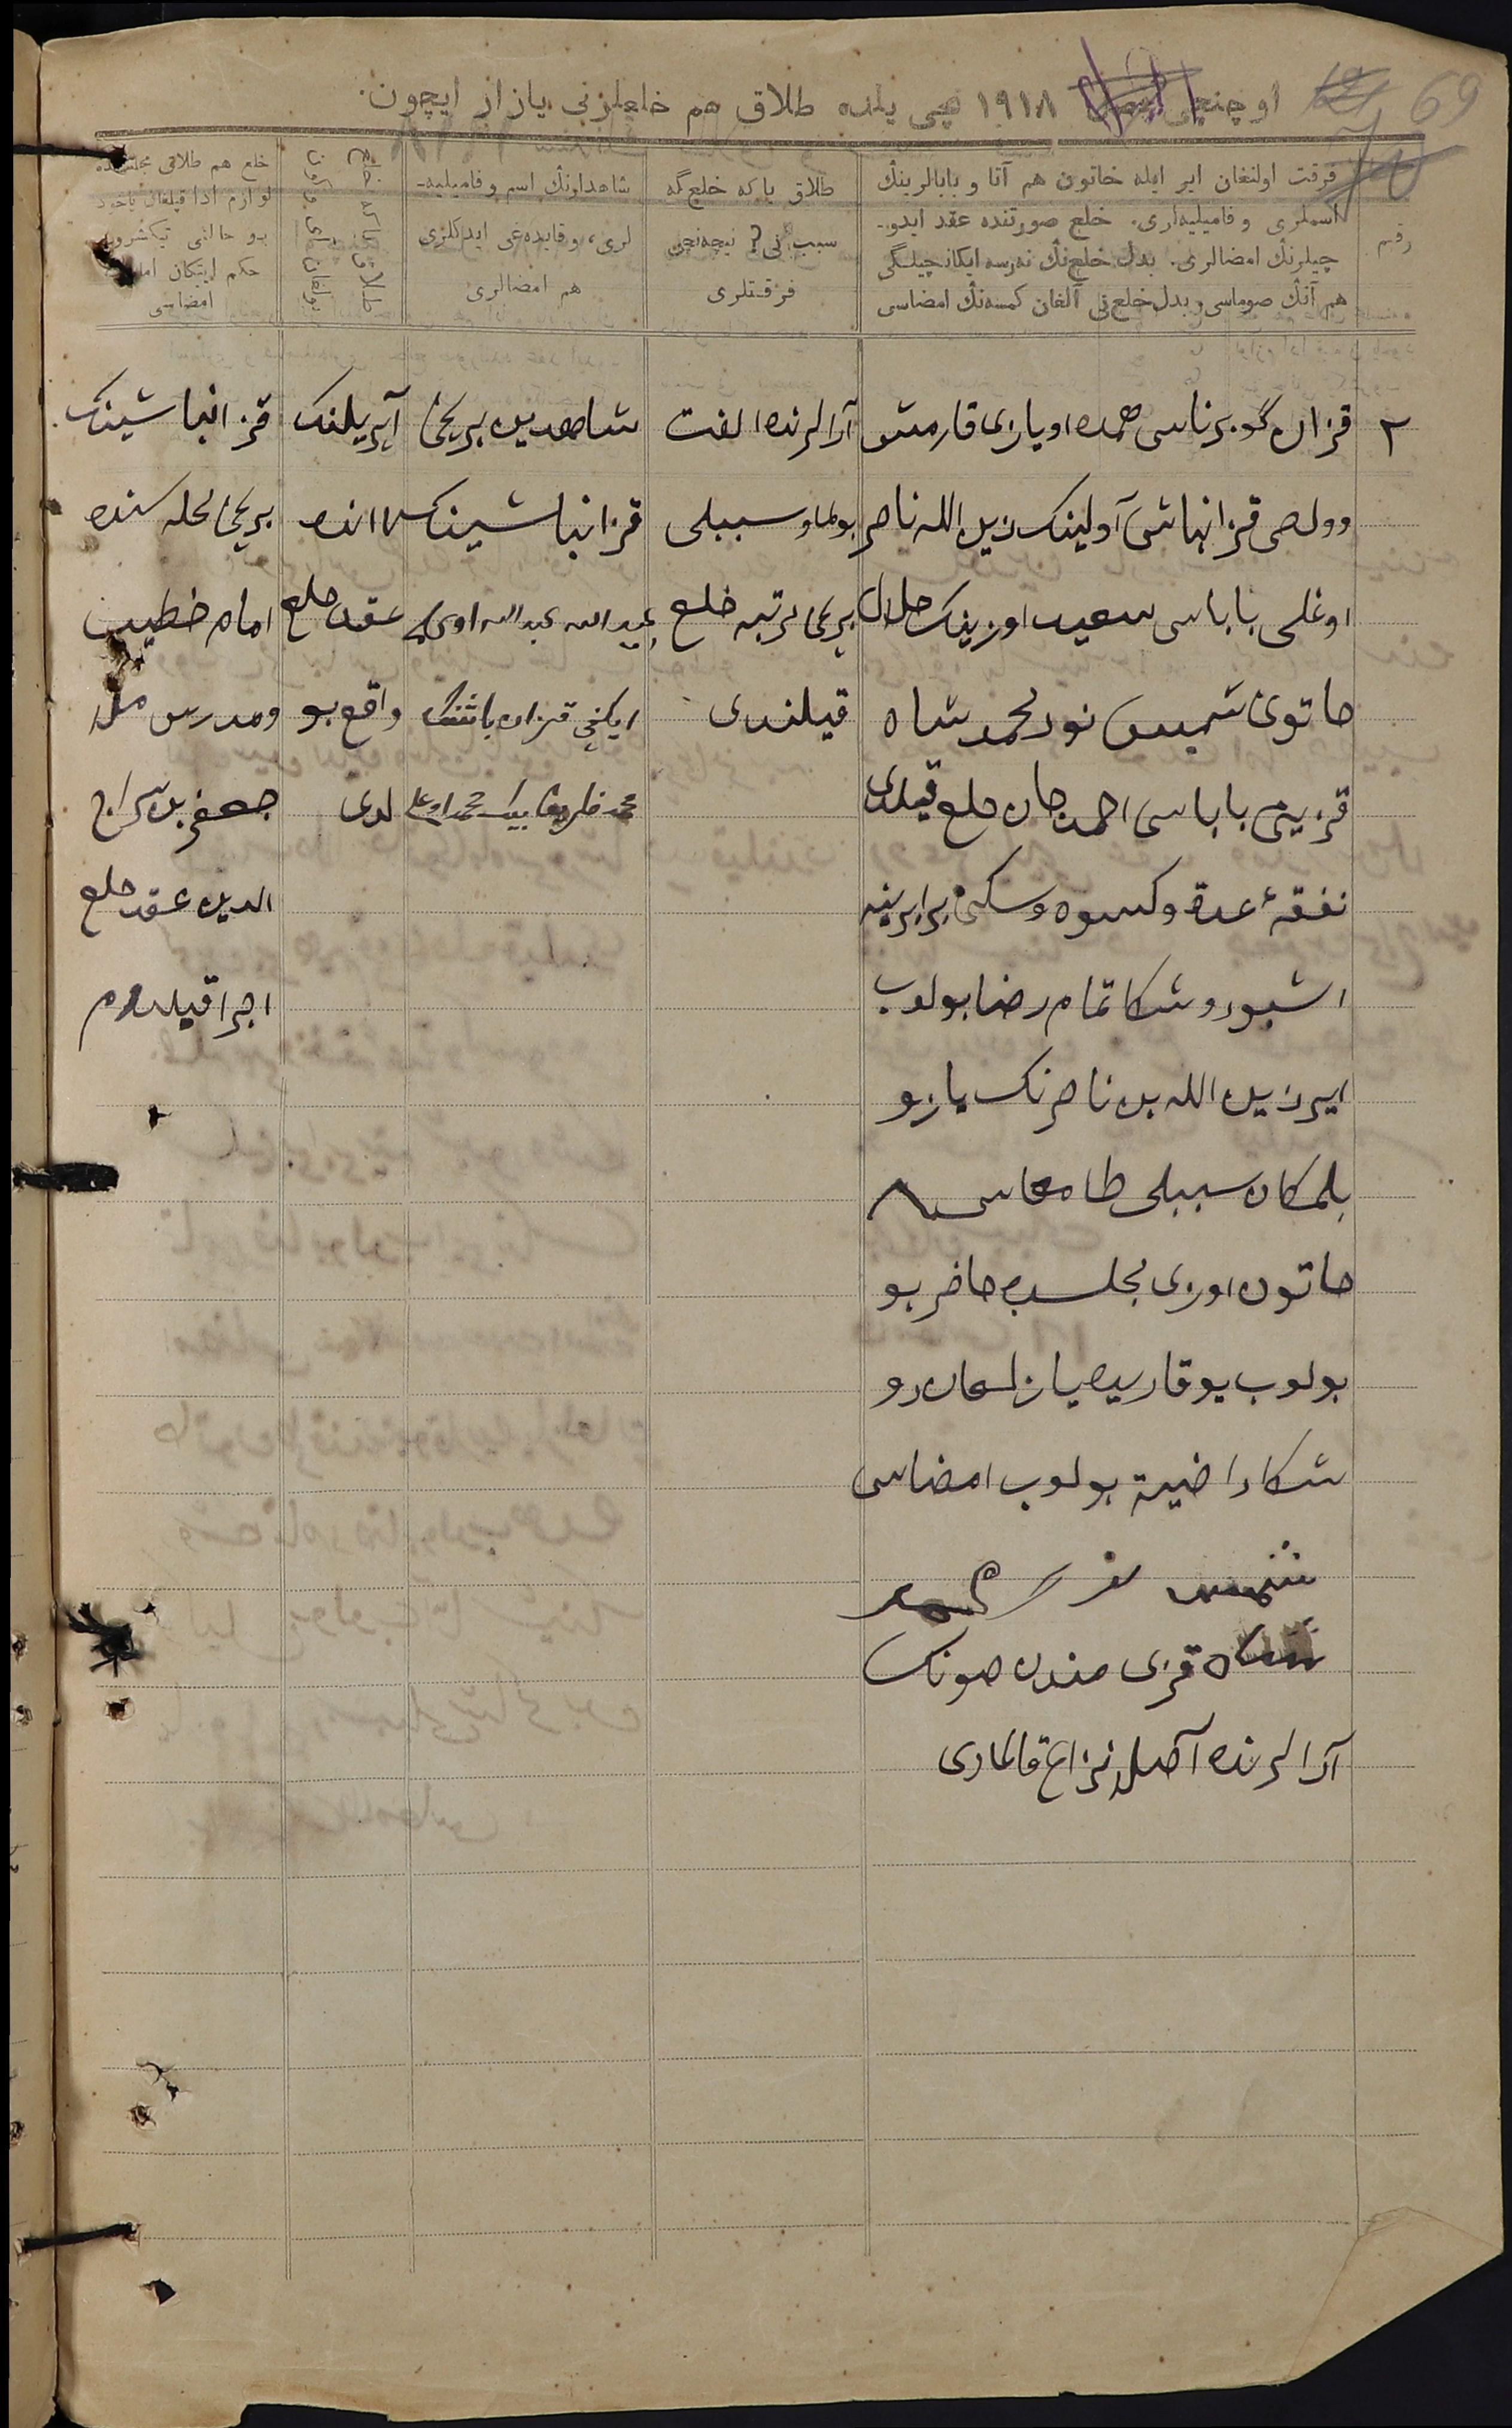 69
اوچنچی ١٩١٨ نچی یلده طلاق هم خلعلرنی یازار ایچون.
رقم
فرقت اولنغان ایر ایله خاتون هم آتا و بابالرینڭ
اسملری و فامیلیه‌لری. خلع صورتنده عقد ایدو-
چیلرنڭ امضالری. بدل خلع‌نڭ نه‌رسه ایکانچیلگی
هم آنڭ صوماسی و بدل خلع‌نی آلغان کمسه‌نڭ امضاسی
طلاق یا که خلع‌گه
سبب نی؟ نیچه‌نچی
فرقتلری
شاهدلرنڭ اسم و فامیلیه-
لری، و قایده‌غی ایدکلری
هم امضالری
طلاق یا که خلع
نڭ قای آی و کون
بولغان
خلع هم طلاق مجلسنده
لوازم ادا قیلغان یاخود
بو حالنی تیکشروب
حکم ایتکان امام
امضاسی
٢
قزان گوبرناسی اویازی قارمش
وولصی قزانباشی آولینک زین الله ناصر
اوغلی باباسی سعید اوزینک حلال
خاتونی شمس نورمحمدشاه
قزیمی باباسی احمدجان خلع قیلدی
نفقهٔ عدة و کسوه و سکنی برابرینه
اشبو روشکا تمام رضا بولوب
ایر زین الله بن ناصرنک یازو
بلمکان سببلی طامغاسی
خاتون اوزی مجلسده حاضر بو
بولوب یوقاریده یازلغان رو
شکا راضیة بولوب امضاسی
شمس نور محمد
شاه قزی مندن صونک
آرالرنده آصلا نزاع قالمادی
آرالرنده الفت
بولماو سببلی
برنچی مرتبه خلع
قیلندی
شاهدین برنچی
قزانباشینک
عبیدالله عبدالله اوغلی
ایکنچی قزان باشنڭ
محمد اوغلی
آپریلنک
انده
عقد خلع
واقع بو
لدی
قزانباشینک
برنچی محله سنده
امام خطیب
ومدرس ملا
جعفر بن سراج
الدین عقد خلع
اجرا قیلدم